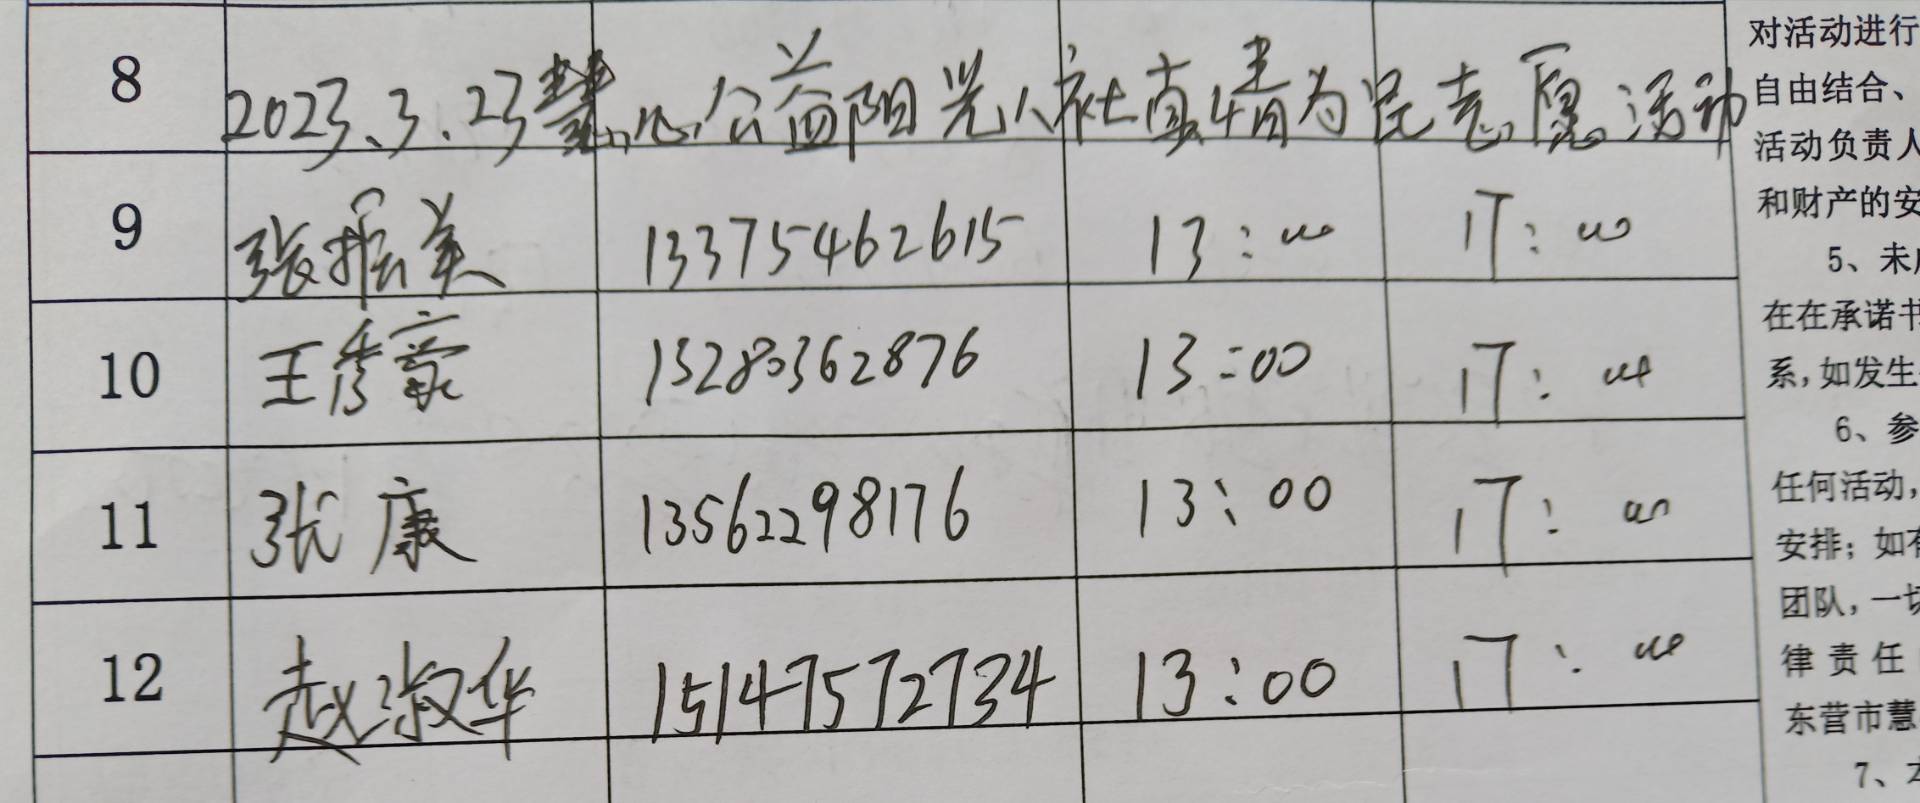 8 2023.3.23慧心公益阳光人社真情为民志愿活动
9 张振美 13375462615 13:00 17:00
10 王秀蒙 15280362876 13:00 17:00
11 张康 13562298176 13:00 17:00
12 赵淑华 15147572734 13:00 17:00
对活动进行
自由结合、
活动负责人
和财产的安
5、未
在在承诺书
系,如发生
6、参
任何活动,
安排;如有
团队,一切
律责任
东营市慧
7、本